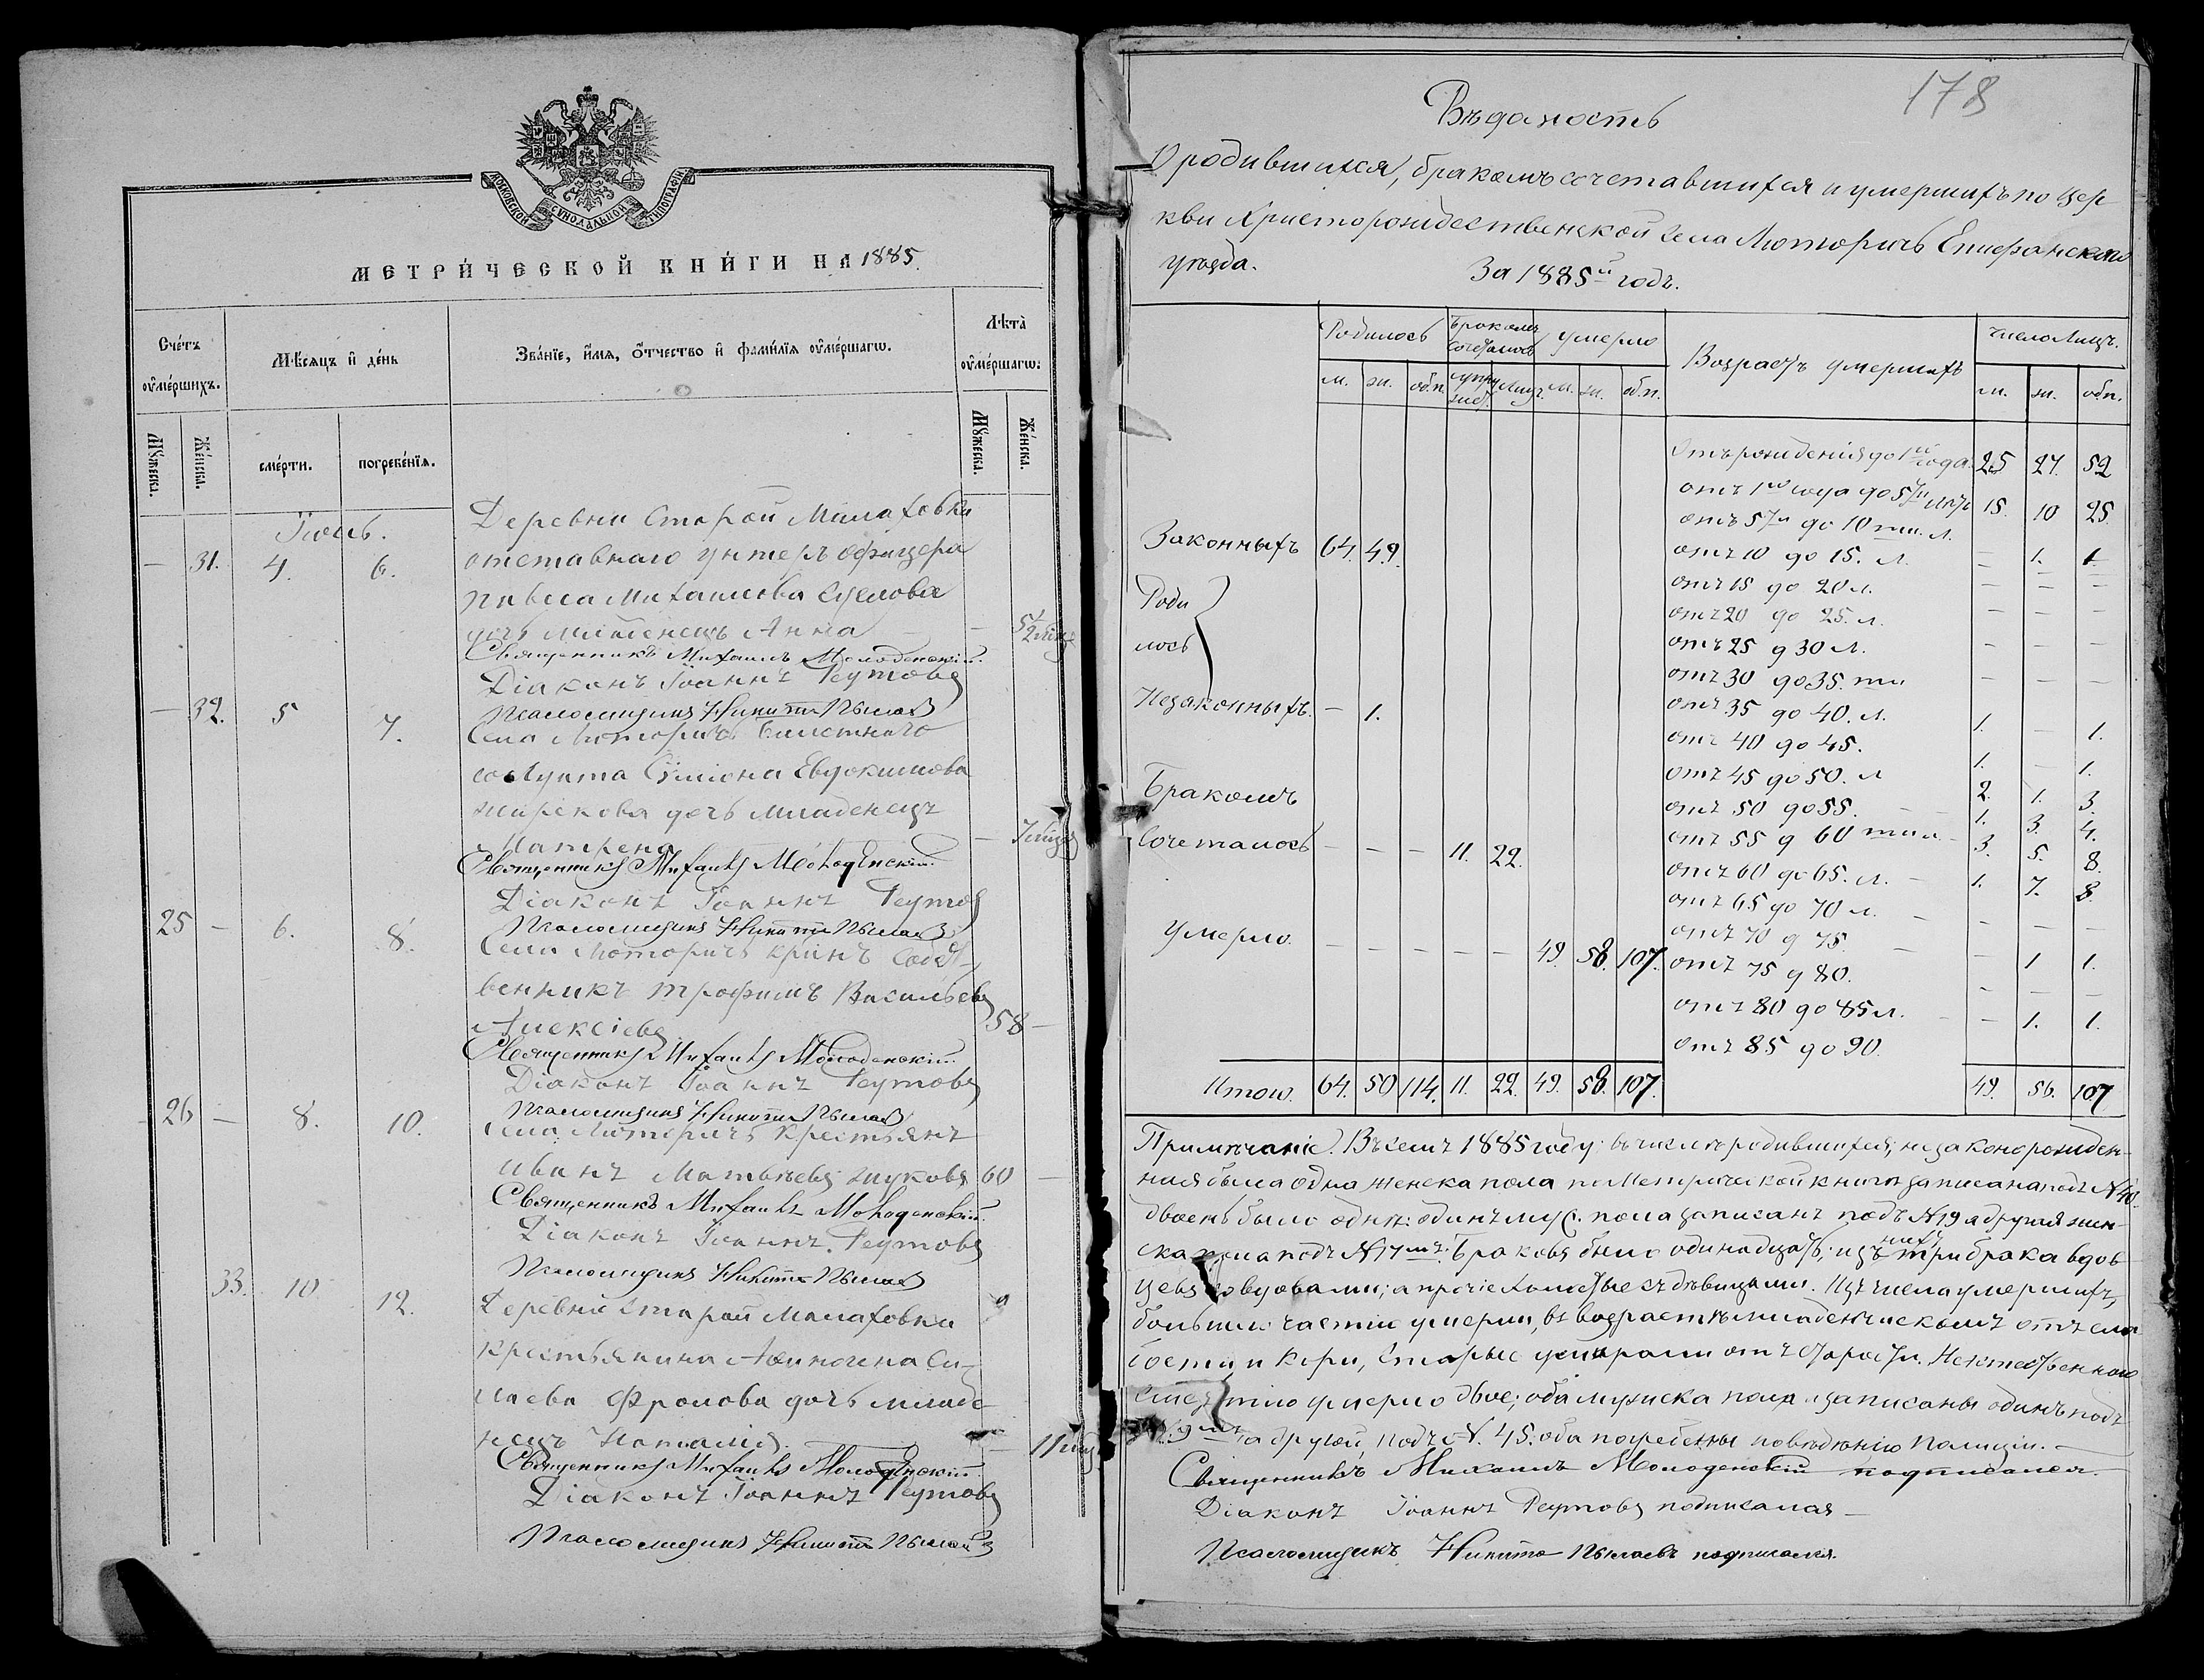 МОСКОВСКОЙ СѴНОДАЛЬНОЙ ТИПОГРАФІИ
МЕТРИ́ЧЕСКОЙ КНИ́ГИ НА 1885.
Сче́тъ ᲂу҆ме́ршихъ.
Мѣ́сяцъ и҆ де́нь
Зва́нїе, и҆́мя, ѻ҆́тчество и҆ фами́лїя ᲂу҆ме́ршагѡ.
Лѣ́та ᲂу҆ме́ршагѡ:
Мꙋ́жеска.
Же́нска.
сме́рти.
погребе́нїѧ.
Мꙋ́жеска.
Же́нска.
Іюль.
Деревни Старой Малаховки
— 31. 4. 6. отставнаго унтеръ офицера
Михаилова
дочь младенецъ Анна — 5½ мѣс
Священникъ Михаилъ Молоденскій.
Діаконъ Іоаннъ Реутовъ
— 32. 5 7. Псаломщикъ Никита Пылаевъ
Села Люторичь билетнаго
солдата Сѵмеона Евдокимова
дочь младенецъ
Матрена — 7 мѣсяц
Священникъ Михаилъ Молоденскій.
Діаконъ Іоаннъ Реутовъ
25 — 6. 8. Псаломщикъ Никита Пылаевъ
Села Люторичь кр-инъ собст-
венникъ Трофимъ Васильевъ
Алексіевъ 58 —
Священникъ Михаилъ Молоденскій.
Діаконъ Іоаннъ Реутовъ
26 — 8. 10. Псаломщикъ Никита Пылаевъ
Села Люторичь крестьянъ
Иванъ Матвѣевъ Жуковъ 60 —
Священникъ Михаилъ Молоденскій.
Діаконъ Іоаннъ Реутовъ
Псаломщикъ Никита Пылаевъ
33. 10. 12. Деревни Старой Малаховки
крестьянина Авиногена Си-
лаева Фролова дочь младе
нецъ Наталія. — 11 мѣс
Священникъ Михаилъ Молоденскій.
Діаконъ Іоаннъ Реутовъ
Псаломщикъ Никита Пылаевъ
178
Вѣдомость
О родившихся, бракомъ сочетавшихся и умершихъ по цер
кви Христорождественской села Люторичь Епифанскаго
уѣзда. За 1885й годъ.
Родилось
Бракомъ сочеталось
Умерло
Возрастъ умершихъ
Число Лицъ.
м. ж. об.п. супру жест. Лицъ. м. ж. об.п. м. ж. об.п.
Отъ рожденія до 1го года. 25 27. 52
отъ 1го года до 5ти лѣтъ 15. 10 25.
отъ 5ти до 10ти. л. — 1. 1
Законныхъ 64. 49.
отъ 10 до 15. л. — — —
отъ 15 до 20 л. — — —
Роди
лось
отъ 20 до 25. л.
отъ 25 д 30 л. — — —
отъ 30 до 35.ти — — —
Незаконныхъ. — 1.
отъ 35 до 40. л. 1. — 1.
отъ 40 до 45. 1. — 1.
отъ 45 до 50. л 2. 1. 3.
Бракомъ
отъ 50 до 55. — 1. 3. 4.
Сочеталось — — — 11. 22.
отъ 55 д 60 ти л. — 3. 5. 8.
отъ 60 до 65. л. — 1. 7. 8.
отъ 65 до 70 л. — — — —
Умерло. — — — — — 49. 58. 107.
отъ 70 д 75. — — 1 1.
отъ 75 д 80. — — —
отъ 80 до 85 л. — — 1. 1.
отъ 85 до 90.
Итого. 64. 50 114. 11. 22. 49. 58. 107. 49. 58. 107
Примѣчаніе. Въ семъ 1885 году въ числѣ родившихся, незаконорожден-
ная была одна женска пола по Метрической книгѣ записана подъ №40.
двоенъ было однѣ: одинъ муж. пола записанъ подъ №19 а другая жен-
ска пола подъ №17мъ. Браковъ было одинадцать; изъ нихъ три брака вдов
цевъ со вдовами; а прочіе холостые съ дѣвицами. Изъ числа умершихъ,
большею частію умерли, въ возрастѣ младенческомъ отъ сла
бости и Кори, Старые умирали отъ старости. Неестественною
смертію умерло двое; оба мужска пола записаны одинъ подъ
а другой подъ №. 45. оба погребены по вѣдѣнію Полиціи. —
Священникъ Михаилъ Молоденскій подписался.
Діаконъ Іоаннъ Реутовъ подписался —
Псаломщикъ Никита Пылаевъ подписался.